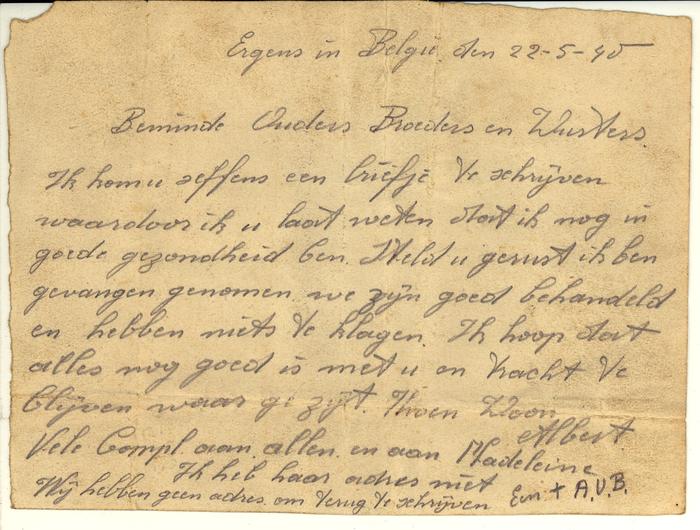 Ergens in België, den 22-5-40
Beminde Ouders Broeders en Zusters.
Ik kom u seffens een briefje te schrijven
waardoor ik u laat weten dat ik nog in
goede gezondheid ben. Steld u gerust ik ben
gevangen genomen we zijn goed behandeld
en hebben niets te klagen. Ik hoop dat
alles nog goed is met u en tracht te
blijven waar ge zijt. Uwen Zoon
Albert
Vele Compl. aan allen en aan Madeleine
Ik heb haar adres niet
Wij hebben geen adres om terug te schrijven Een + A.V.B.